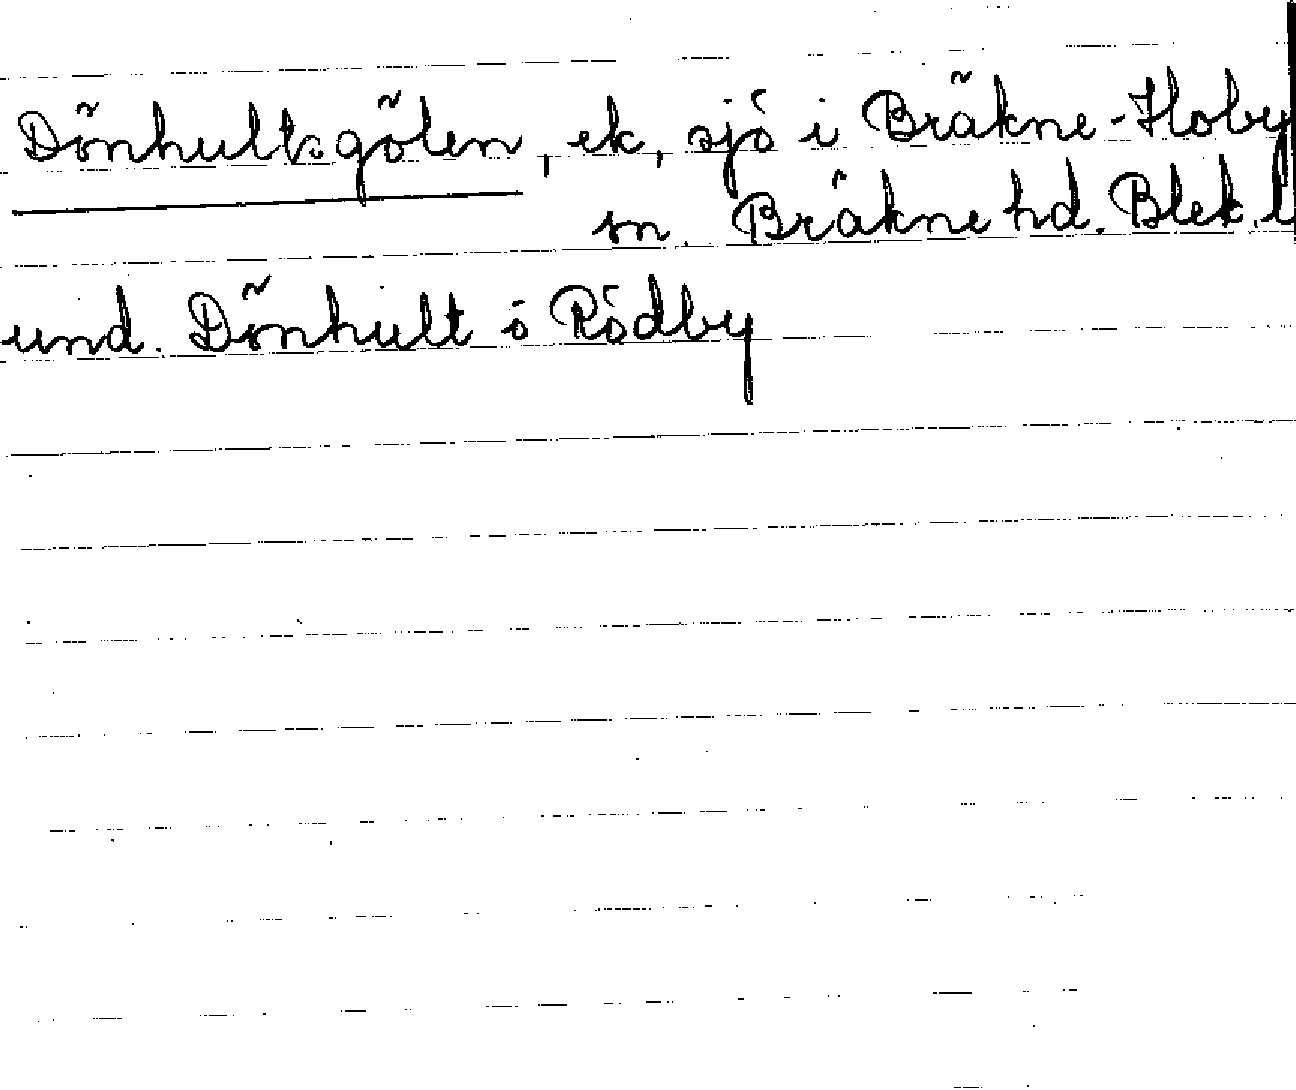 Dönhultsgölen, ek, sjö i Bräkne-Hoby
sn. Bräkne hd. Blek. l
und. Dönhult i Rödby